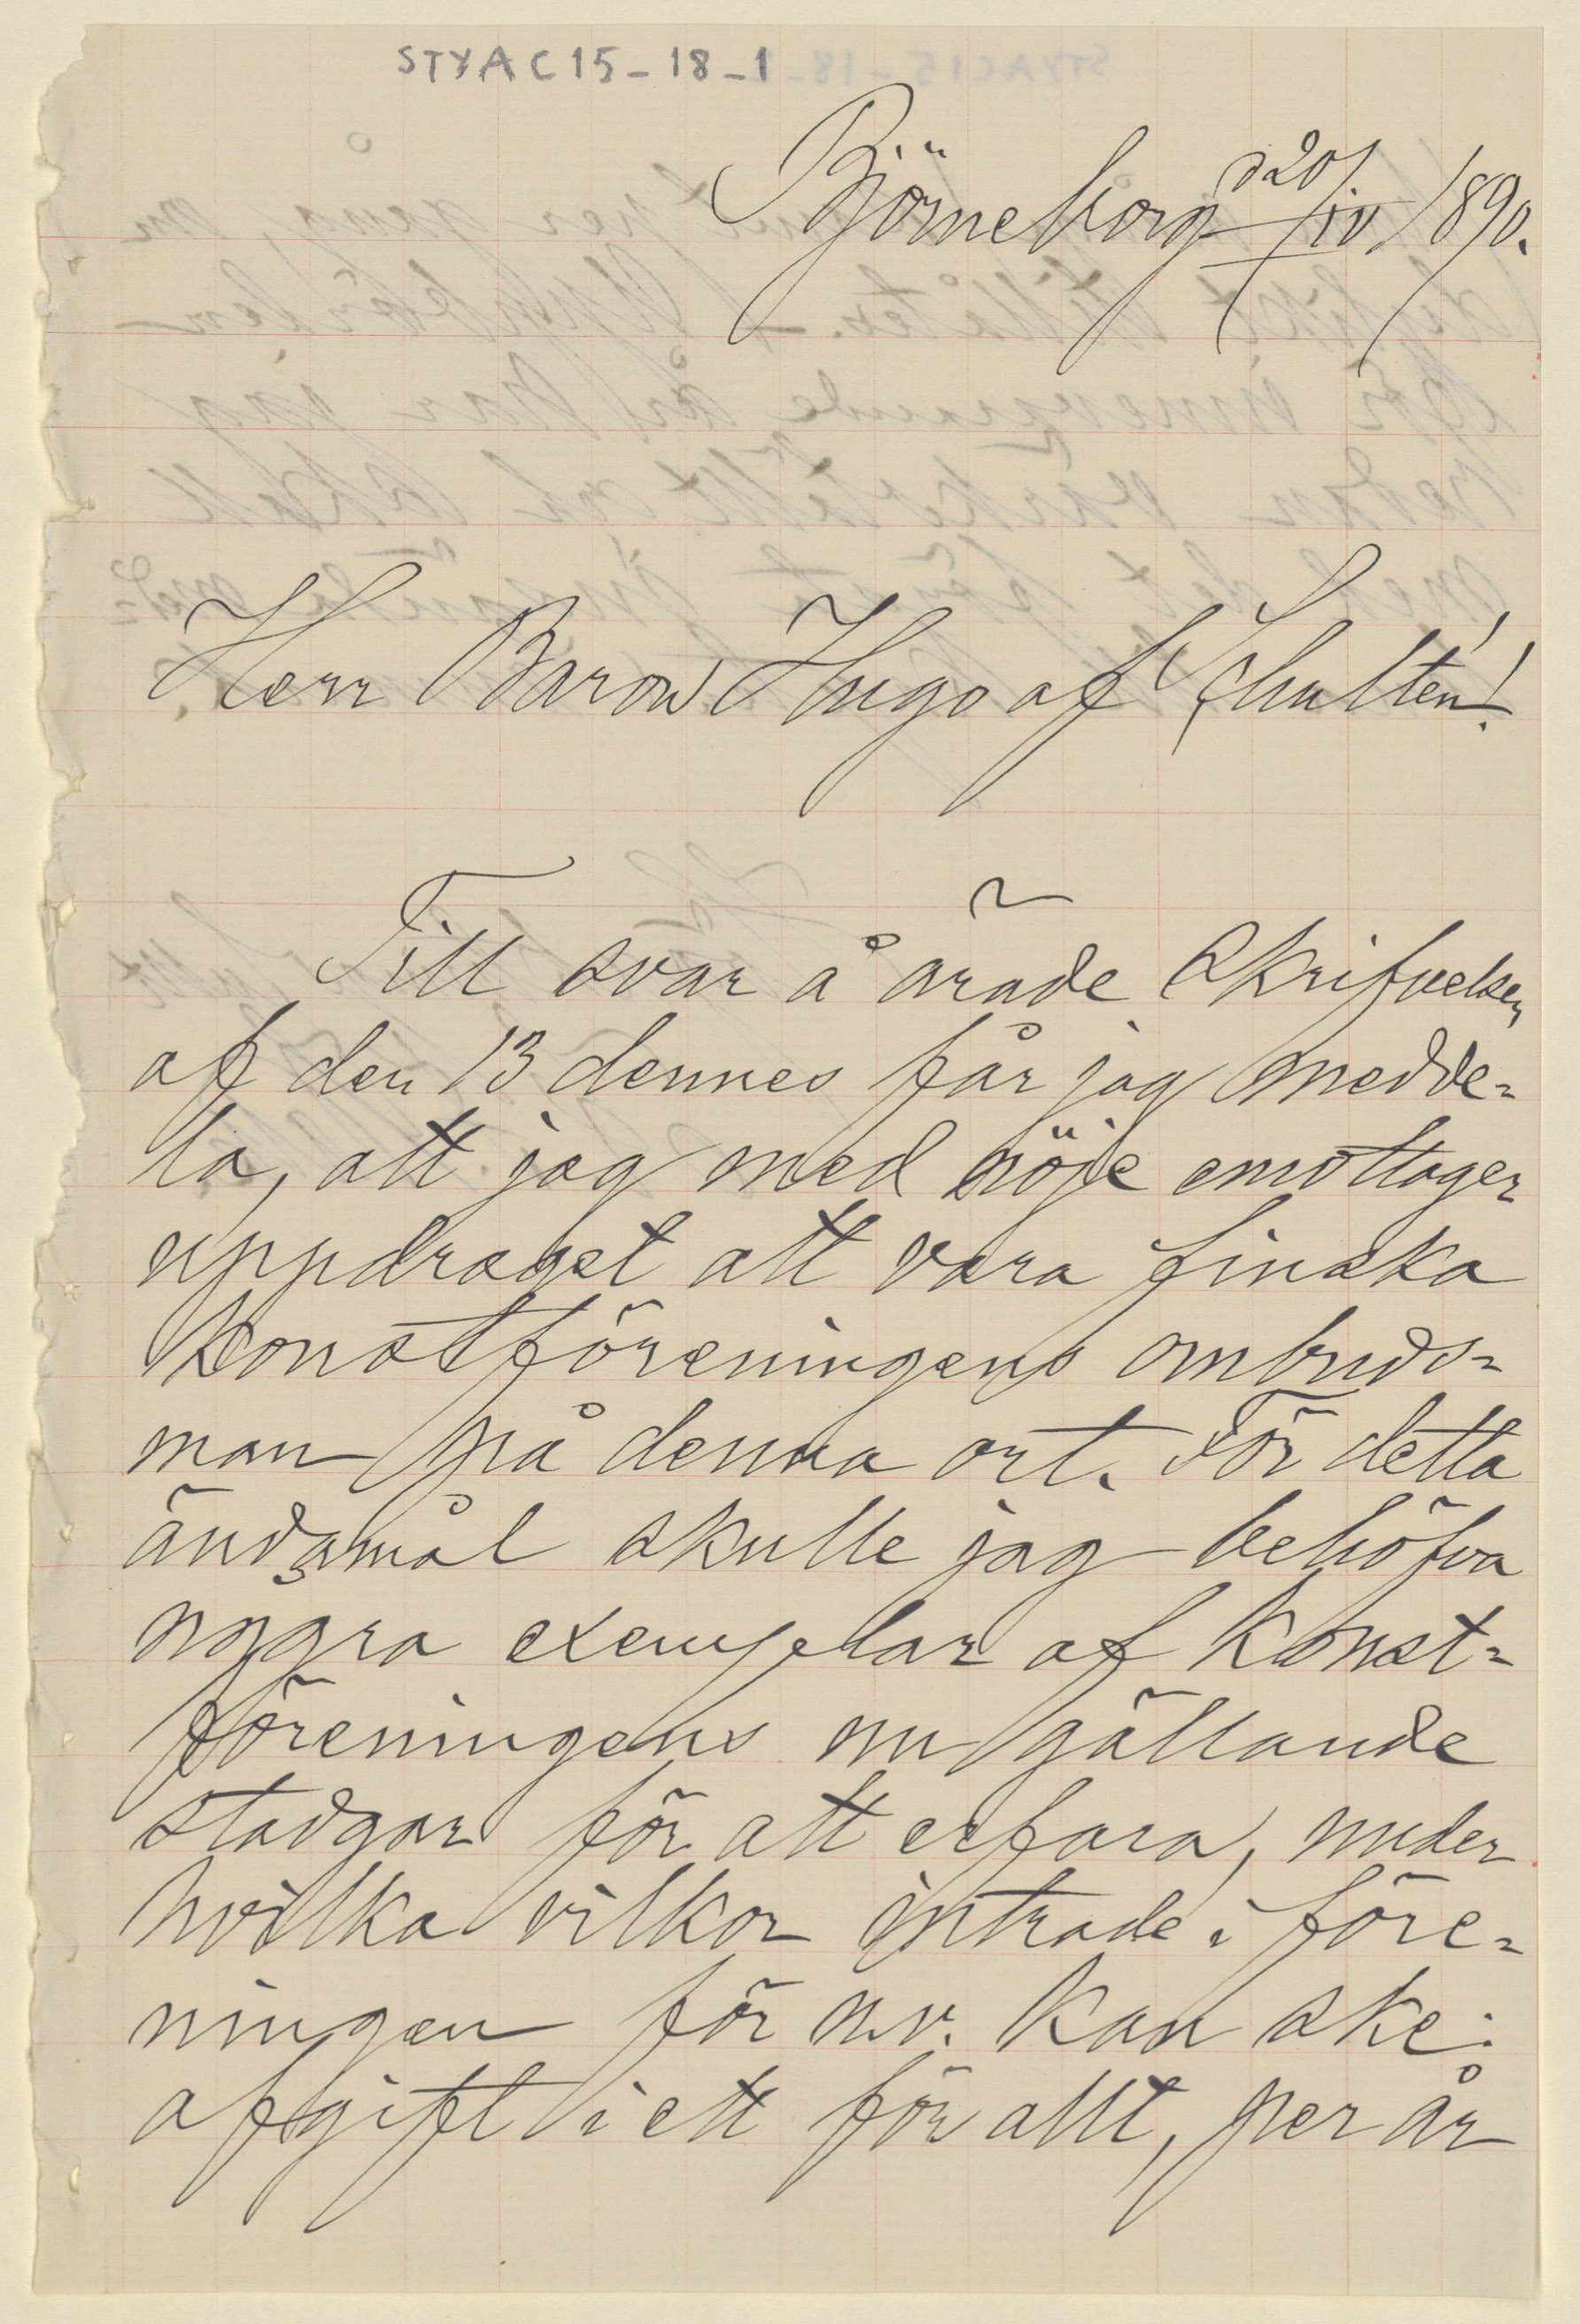 STYAC15-18-1
Björneborg d 20/IV 1890.
Herr Baron Hugo af Schultén!
Till svar å ärade skrifvelsen
af den 13 dennes får jag medde=
la, att jag med nöje emottager
uppdraget att vara finska
Konstföreningens ombuds=
man på denna ort. För detta
ändamål skulle jag behöfva
några exemplar af Konst=
föreningens nu gällande
stadgar för att erfara, under
hvilka vilkor inträde i före=
ningen för n.v. kan ske:
afgift i ett för allt, per år